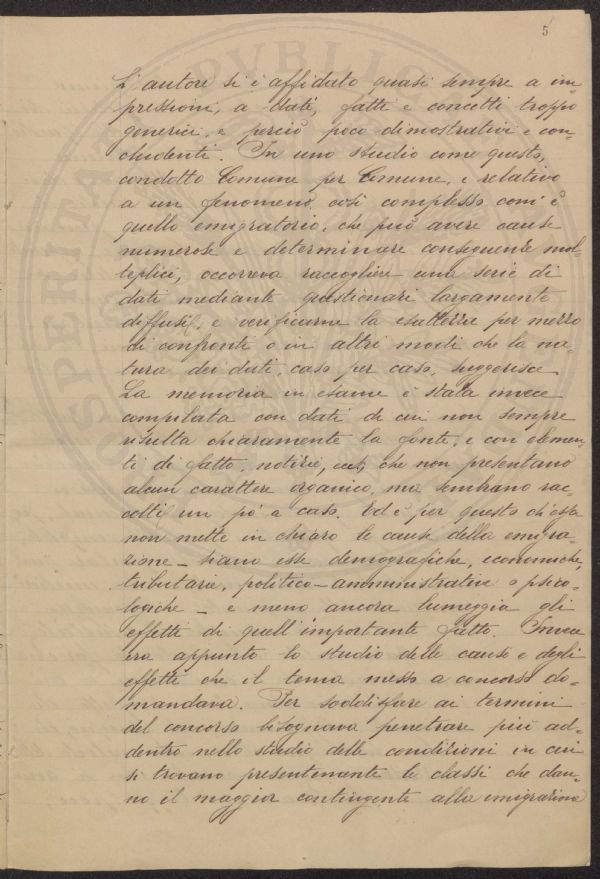 5
L'autore si è affidato quasi sempre a im-
pressioni, a dati, fatti e concetti troppo
generici, e perciò poco dimostrativi e con-
cludenti. In uno studio come questo,
condotto Comune per Comune, e relativo
a un fenomeno così complesso com'è
quello emigratorio, che può avere cause
numerose e determinare conseguenze mol-
teplici, occorreva raccogliere una serie di
dati mediante questionari largamente
diffusi, e verificarne la esattezza per mezzo
di confronti o in altri modi che la na-
tura dei dati, caso per caso, suggerisce.
La memoria in esame è stata invece
compilata con dati di cui non sempre
risulta chiaramente la fonte, e con elemen-
ti di fatto, notizie, ecc., che non presentano
alcun carattere organico, ma sembrano rac-
colti un po' a caso. Ed è per questo ch'essa
non mette in chiaro le cause della emigra-
zione - siano esse demografiche, economiche,
tributarie, politico-amministrative o psico-
logiche - e meno ancora lumeggia gli
effetti di quell'importante fatto. Invece
era appunto lo studio delle cause e degli
effetti che il tema messo a concorso do-
mandava. Per soddisfare ai termini
del concorso bisognava penetrare più ad-
dentro nello studio delle condizioni in cui
si trovano presentemente le classi che dan-
no il maggior contingente alla emigrazione
PVBLIC
SPERITA